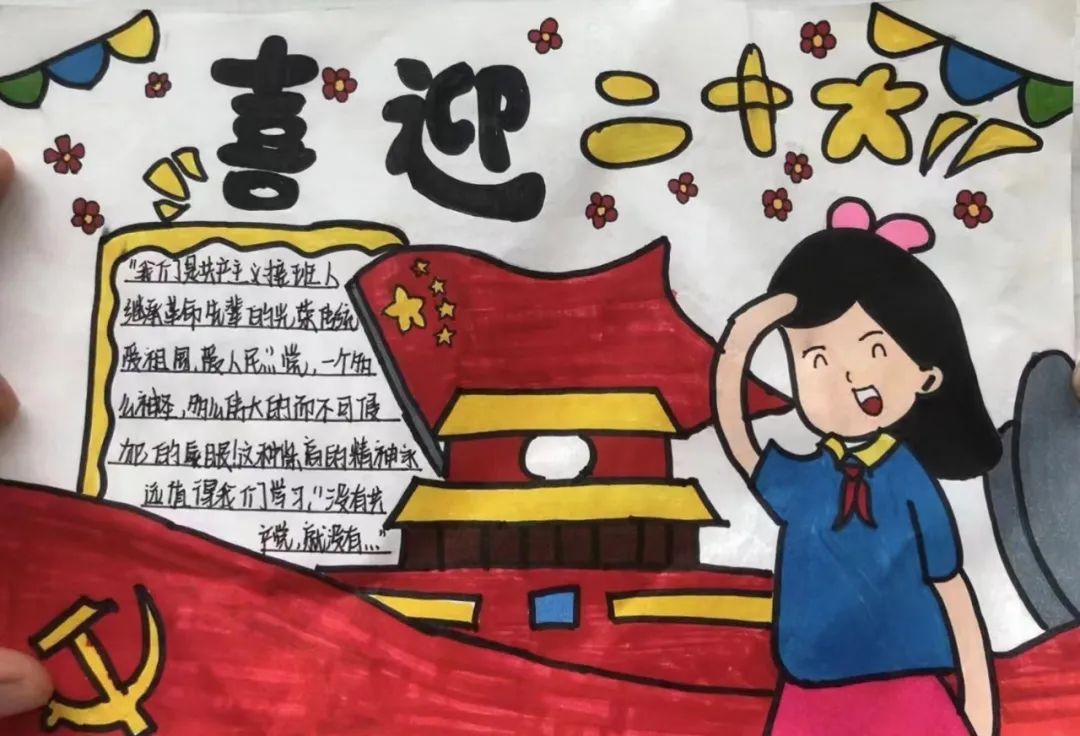 喜迎二十大
"我们是共产主义接班人
继承革命先辈的光荣传统
爱祖国,爱人民",党,一个多
么神圣,多么伟大的而不可侵
犯的字眼!这种崇高的精神永
远值得我们学习,"没有共
产党,就没有..."